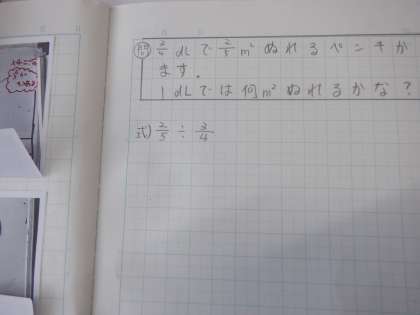 問 3/4 dLで 2/5 m² ぬれるペンキが
ます。
1dLでは何m² ぬれるかな?
式) 2/5 ÷ 3/4